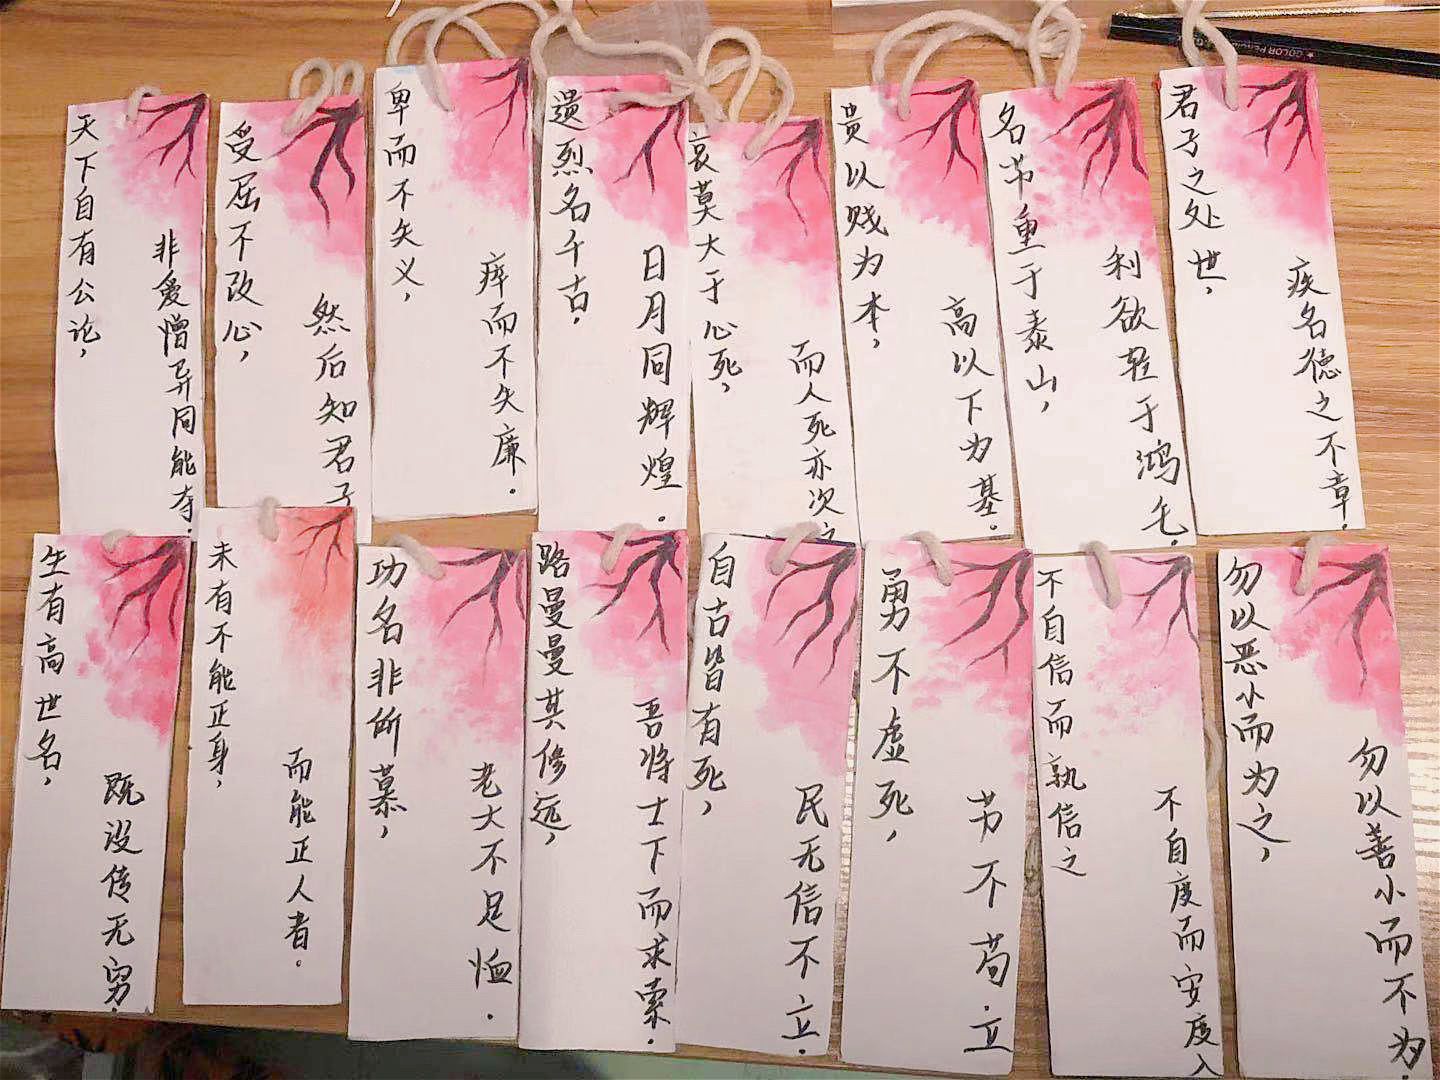 天下自有公论，
非爱憎异同能夺.
受屈不改心，
然后知君子
卑而不失义，
瘁而不失廉.
遗烈名千古，
日月同辉煌.
哀莫大于心死，
而人死亦次之
贵以贱为本，
高以下为基.
名节重于泰山，
利欲轻于鸿毛.
君子之处世，
疾名德之不章.
生有高世名，
既没传无穷.
未有不能正身，
而能正人者.
功名非所慕，
老大不足恤.
路曼曼其修远，
吾将士下而求索.
自古皆有死，
民无信不立.
勇不虚死，
节不苟.立
不自信而孰信之
不自度而安度人
勿以恶小而为之，
勿以善小而不为.
COLOR